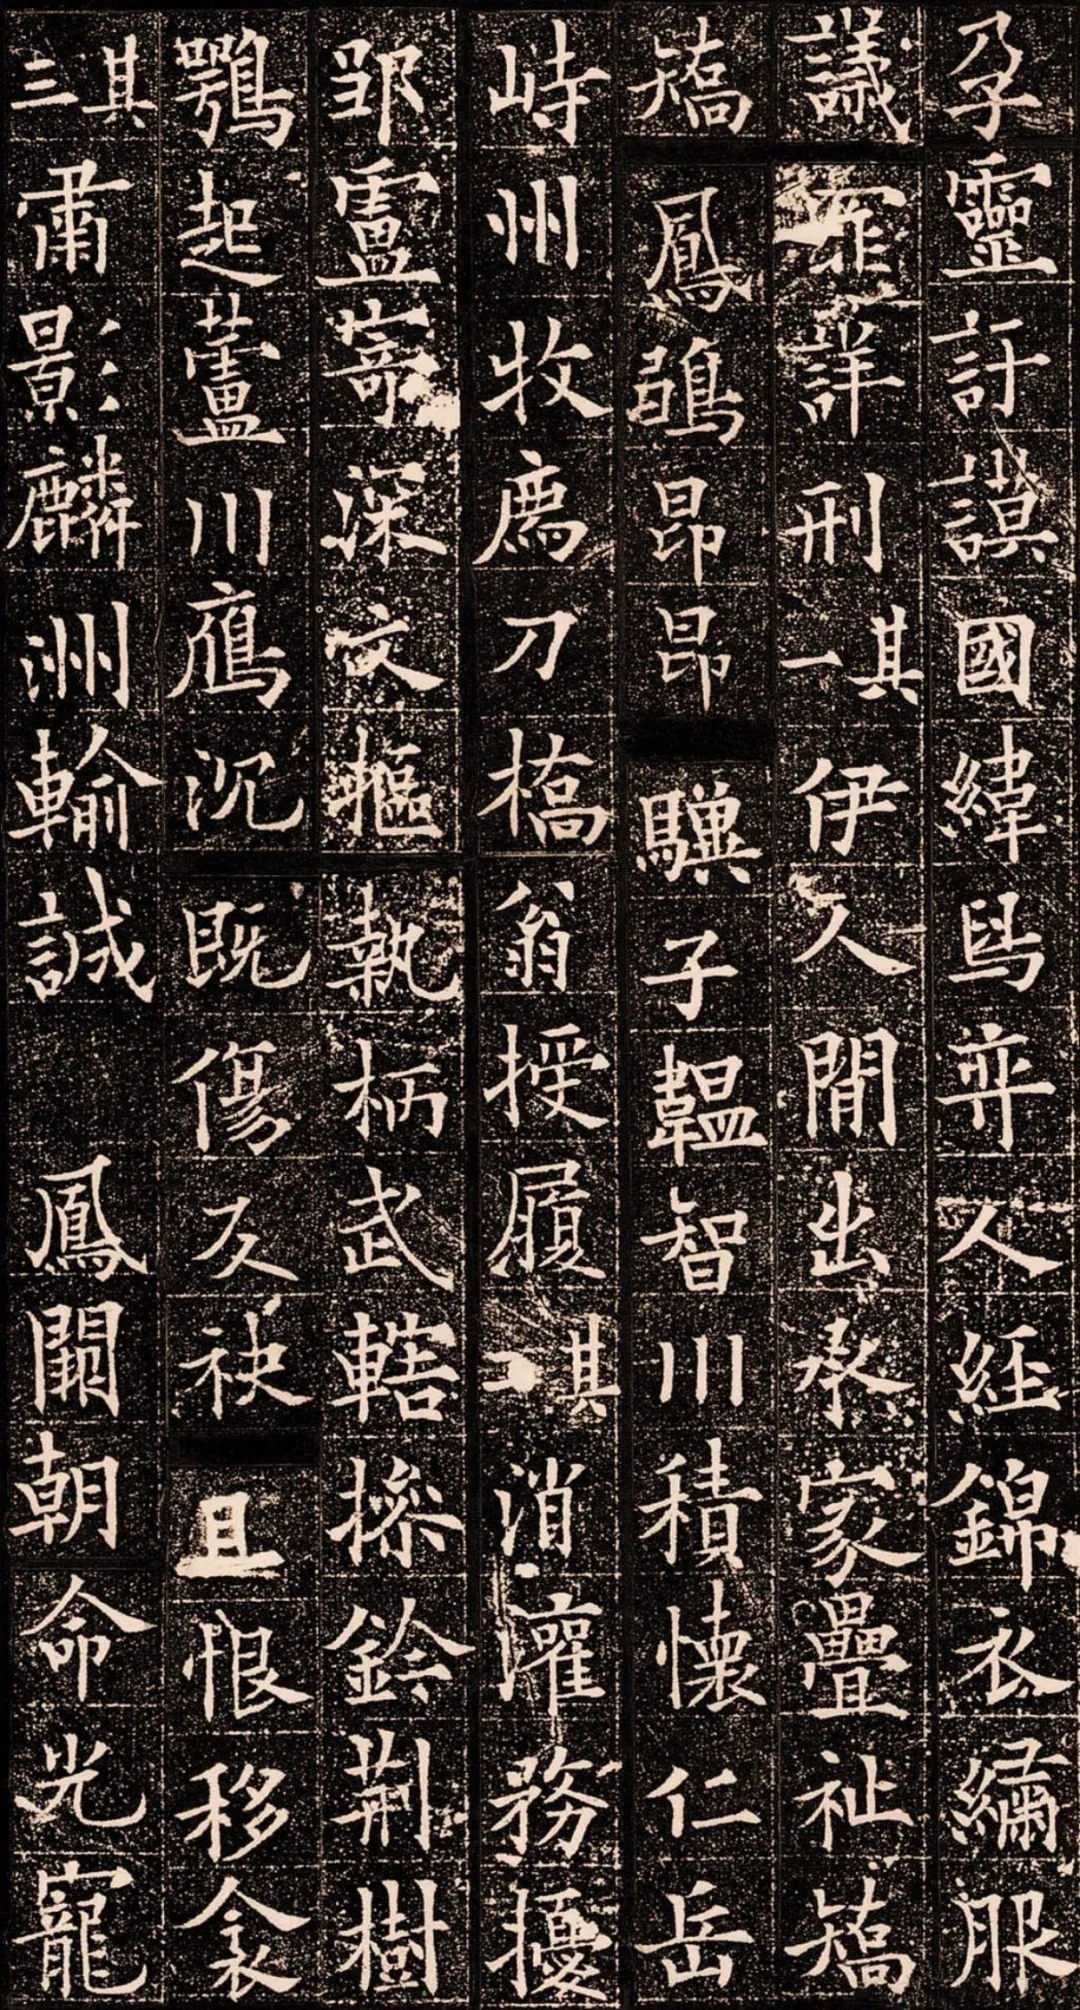 孕靈訏謨國緯舄弈人經錦衣繡服
議罪詳刑其一伊人閒出承家疊祉矯
矯鳳鴞昂昂驥子韞智川積懷仁岳
峙州牧薦刀橋翁授履其二消灌務擾
邹盧寄深文摳執柄武轄操鈐荆樹
鶚起蘆川鴈沉既傷久袂且恨移衾
其三肅影麟洲輸誠鳳闕朝命光寵